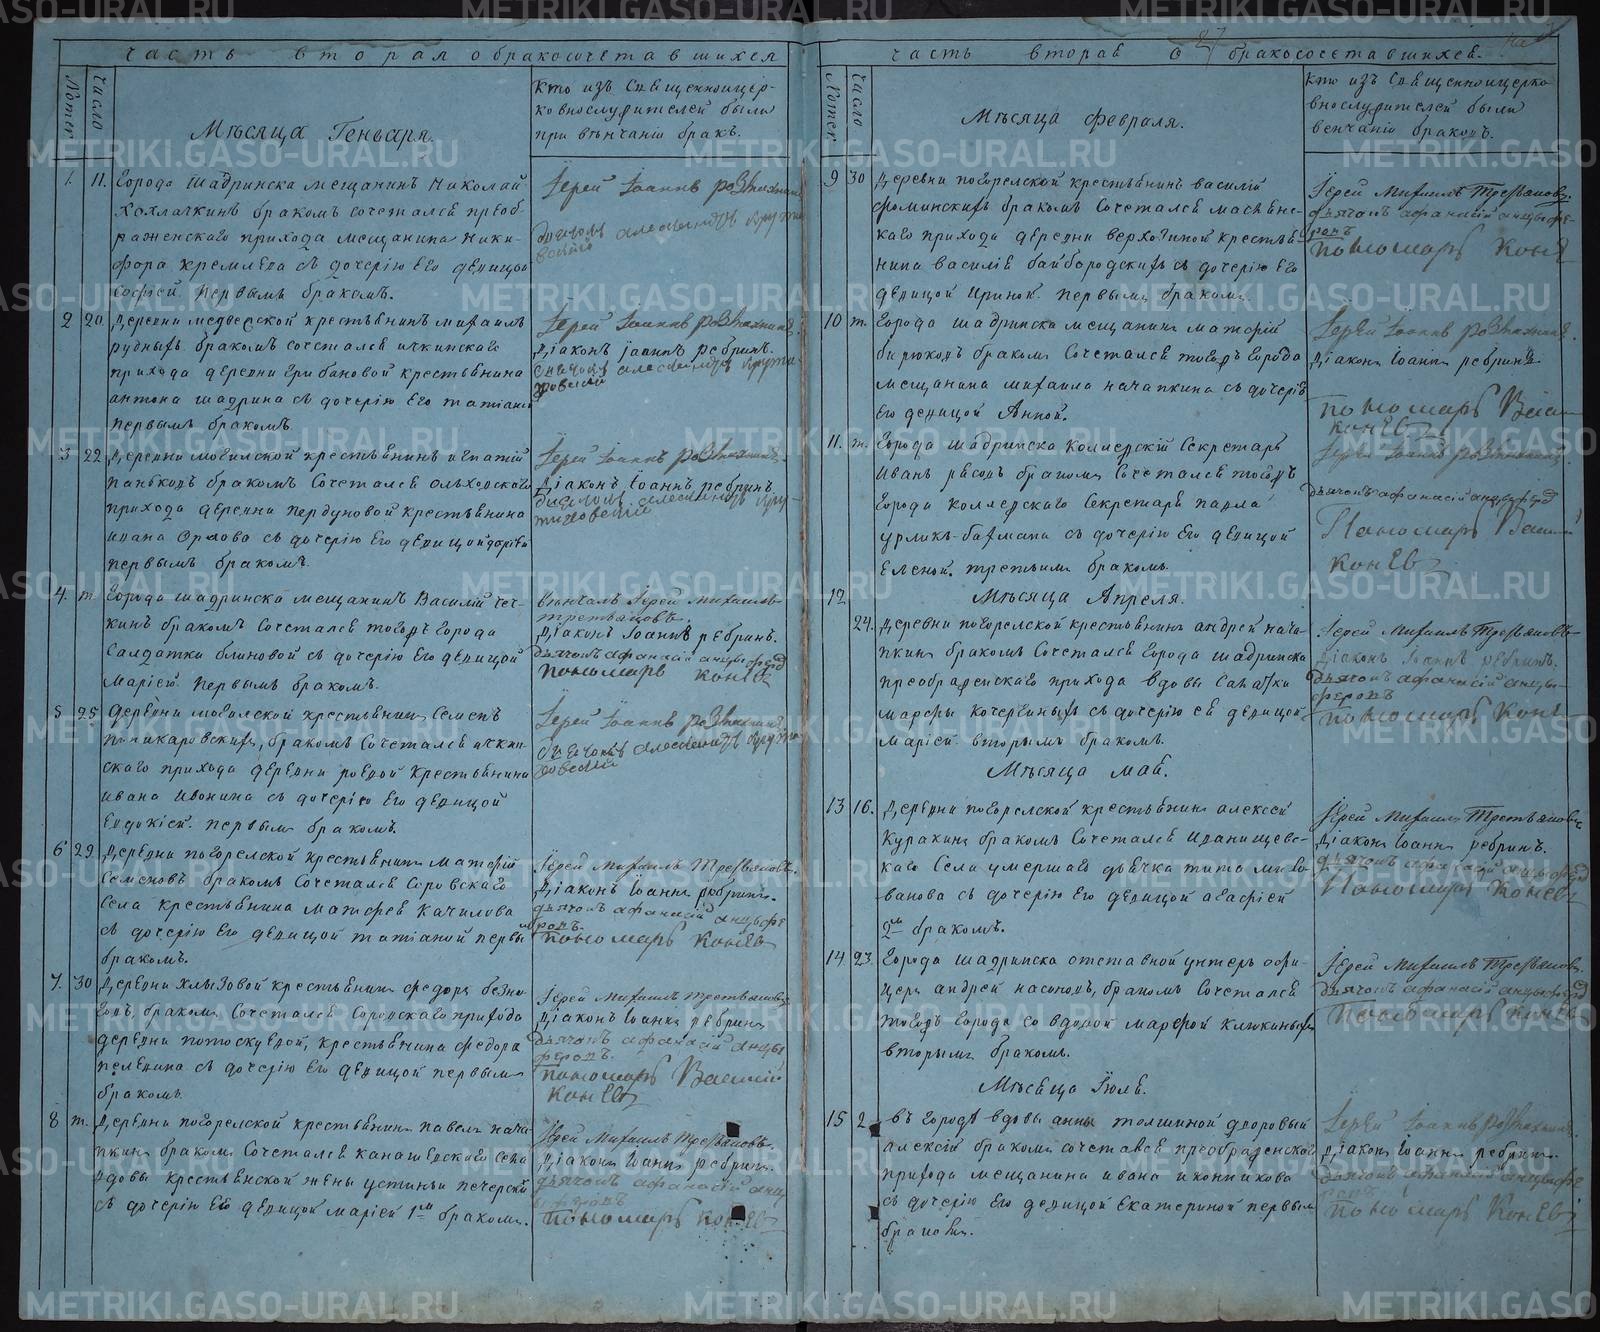 Часть вторая о бракосочетавшихся
Номер
Число
Мѣсяца Геньваря.
Кто изъ Священноицер-
ковнослужителей были
при вѣнчаніи бракъ.
1. 11. Города Шадринска мещанинъ Николай
бракомъ сочетался преоб-
раженскаго прихода мещанина Ники-
фора кремлева съ дочерію Его девицой
Софіей первымъ бракомъ.
Іерей Іоаннъ
2 20. Деревни крестьянинъ михаилъ
бракомъ сочетался ичкинскаго
прихода деревни грибановой крестьянина
антона шадрина съ дочерію Его татіаной
первымъ бракомъ
Іерей Іоаннъ
Діаконъ Іоаннъ ребринъ.
3 22 Деревни могилской крестьянинъ игнатій
паньковъ бракомъ Сочетался ольховскаго
прихода деревни пердуновой крестьянина
ивана Орлова съ дочерію Его девицой
первымъ бракомъ.
Іерей Іоаннъ
Діаконъ Іоаннъ ребринъ
4. т. Города шадринска мещанинъ Василій чеч-
кинъ бракомъ Сочетался тогожъ города
Салдатки блиновой съ дочерію Его девицой
Маріею первымъ бракомъ.
вѣнчалъ Іерей михаилъ
третьяковъ.
Діаконъ Іоаннъ ребринъ.
дьячокъ афанасій анцыферовъ
пономарь коневъ
5 25 деревни могилской крестьянинъ Семенъ
поликаровскихъ, бракомъ Сочетался ичкин-
скаго прихода деревни крестьянина
ивана ивонина съ дочерію Его девицой
Евдокіей. первымъ бракомъ.
Іерей Іоаннъ
6 29 Деревни погорелской крестьянинъ матфей
Семеновъ бракомъ Сочетался Соровскаго
Села крестьянина матфея качилова
съ дочерію Его девицой татіаной первы
бракомъ.
Іерей Михаилъ Третьяковъ.
Діаконъ Іоаннъ ребринъ.
дьячокъ афанасій анцыфе
ровъ.
пономарь Коневъ
7. 30 Деревни хлызовой крестьянинъ федоръ
бракомъ Сочетался Соровскаго прихода
деревни потоскуевой, крестьянина федора
пелевина съ дочерію Его девицой первымъ
бракомъ
Іерей Михаилъ третьяковъ
Діаконъ Іоаннъ ребринъ
дьячокъ афанасій анцы
феровъ.
пономарь Василій
Коневъ
8 т. Деревни погорелской крестьянинъ павелъ нача
пкинъ бракомъ Сочетался канашевскаго Села
вдовы крестьянской жены устиньи печерск
съ дочерію Её девицой маріей 1мъ бракомъ.
Іерей Михаилъ Третьяковъ.
Діаконъ Іоаннъ ребринъ.
дьячокъ афанасій анц
пономарь Коневъ
Часть вторая о бракосочетавшихся.
27
Номер
Число
Мѣсяца февраля.
Кто изъ Священноицерко
внослужителей были
венчаніи браковъ.
9 30 Деревни погорелской крестьянинъ василій
фоминскихъ бракомъ Сочетался маслянс-
каго прихода деревни верхозиной крестья
нина василія байбородскихъ съ дочерію Его
девицой Ириной. первымъ бракомъ
Іерей Михаилъ Третьяковъ.
дьячокъ афанасій анцыфе-
ровъ
пономарь Коне
10 т. Города шадринска мещанинъ матфей
бирюковъ бракомъ Сочетался тогожъ Города
мещанина михаила начапкина съ дочерію
Его девицой Анной.
Іерей Іоаннъ
Діаконъ Іоаннъ ребринъ
пономарь Васи
коневъ
11. т. Города шадринска Коллежскій Секретарь
Иванъ рысовъ бракомъ Сочетался тогожъ
Города коллежскаго Секретаря павла
съ дочерію Его девицой
Еленой. третьимъ бракомъ.
Іерей Іоаннъ
дьячокъ афанасій анцыферов
Пономарь Васил
коневъ
12. Мѣсяца Апреля.
24. Деревни погорелской крестьянинъ андрей нача-
пкинъ бракомъ Сочетался Города шадринска
преображенскаго прихода вдовы Салдатки
марфы Кочергиныхъ съ дочерію её девицой
маріей. вторымъ бракомъ.
Іерей Михаилъ Третьяковъ
Діаконъ Іоаннъ ребринъ.
дьячокъ афанасій анцы-
феровъ
пономарь Коне
Мѣсяца маія.
13 16. Деревни погорелской крестьянинъ алексей
Куракинъ бракомъ Сочетался Иванищевс-
каго Села умершаго дьячка тита
ванова съ дочерію Его девицой агафіей
2мъ бракомъ.
Іерей Михаилъ Третьяковъ
Діаконъ Іоаннъ ребринъ.
дьячокъ афанасій анцыферов
Пономарь Коневъ
14 23. Города шадринска отставной унтеръ офи-
церъ андрей насоновъ, бракомъ Сочетался
тогожъ города со вдовой марфой клюкиныхъ
вторымъ бракомъ.
Іерей Михаилъ Третьяковъ.
дьячокъ афанасій анцыферов
Пономарь Коневъ
Мѣсяца Іюля.
15 2. въ Городѣ вдовы анны толшиной дворовый
алексій бракомъ сочетался преображенскаго
прихода мещанина ивана иконникова
съ дочерію Его девицой Екатериной первымъ
бракомъ.
Іерей Іоаннъ
Діаконъ Іоаннъ ребринъ.
пономарь Коневъ
METRIKI.GASO-URAL.RU